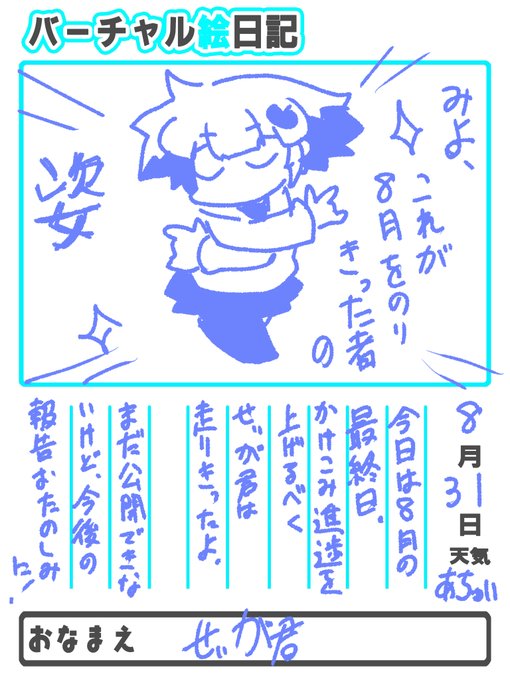 バーチャル絵日記
みよ、
これが
8月をのり
きった者
の
姿
8月31日
天気
あちゅい
今日は8月の
最終日。
かけこみ進捗を
上げるべく
ぜが君は
走りきったよ。
まだ公開できな
いけど、今後の
報告おたのしみ
に!
おなまえ ぜが君